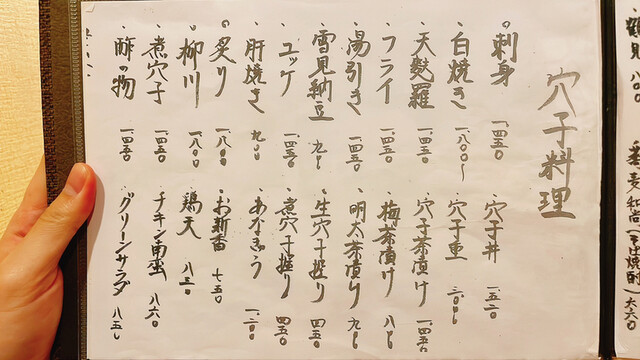 穴子料理
・刺身 一.四五〇
・白焼き 一.八〇〇〜
・天麩羅 一.四五〇
・フライ 一.四五〇
・湯引き 一.四五〇
・雪見納豆 九〇〇
・ユッケ 一.四五〇
・肝焼き 九〇〇
・炙り 一.八〇〇
・柳川 一.八〇〇
・煮穴子 一.四五〇
・酢の物 一.四五〇
・穴子丼
・穴子重 三.〇〇〇
・穴子茶漬け 一.四五〇
・梅茶漬け 八〇〇
・明太茶漬け 九〇〇
・生穴子握り 四五〇
・煮穴子握り 四五〇
・あなきゅう 一.二〇〇
・お新香 七五〇
・鶏天 八三〇
・チキン南蛮 八六〇
・グリーンサラダ 八五〇
見 八〇〇
和尚(そば焼酎) 六六〇